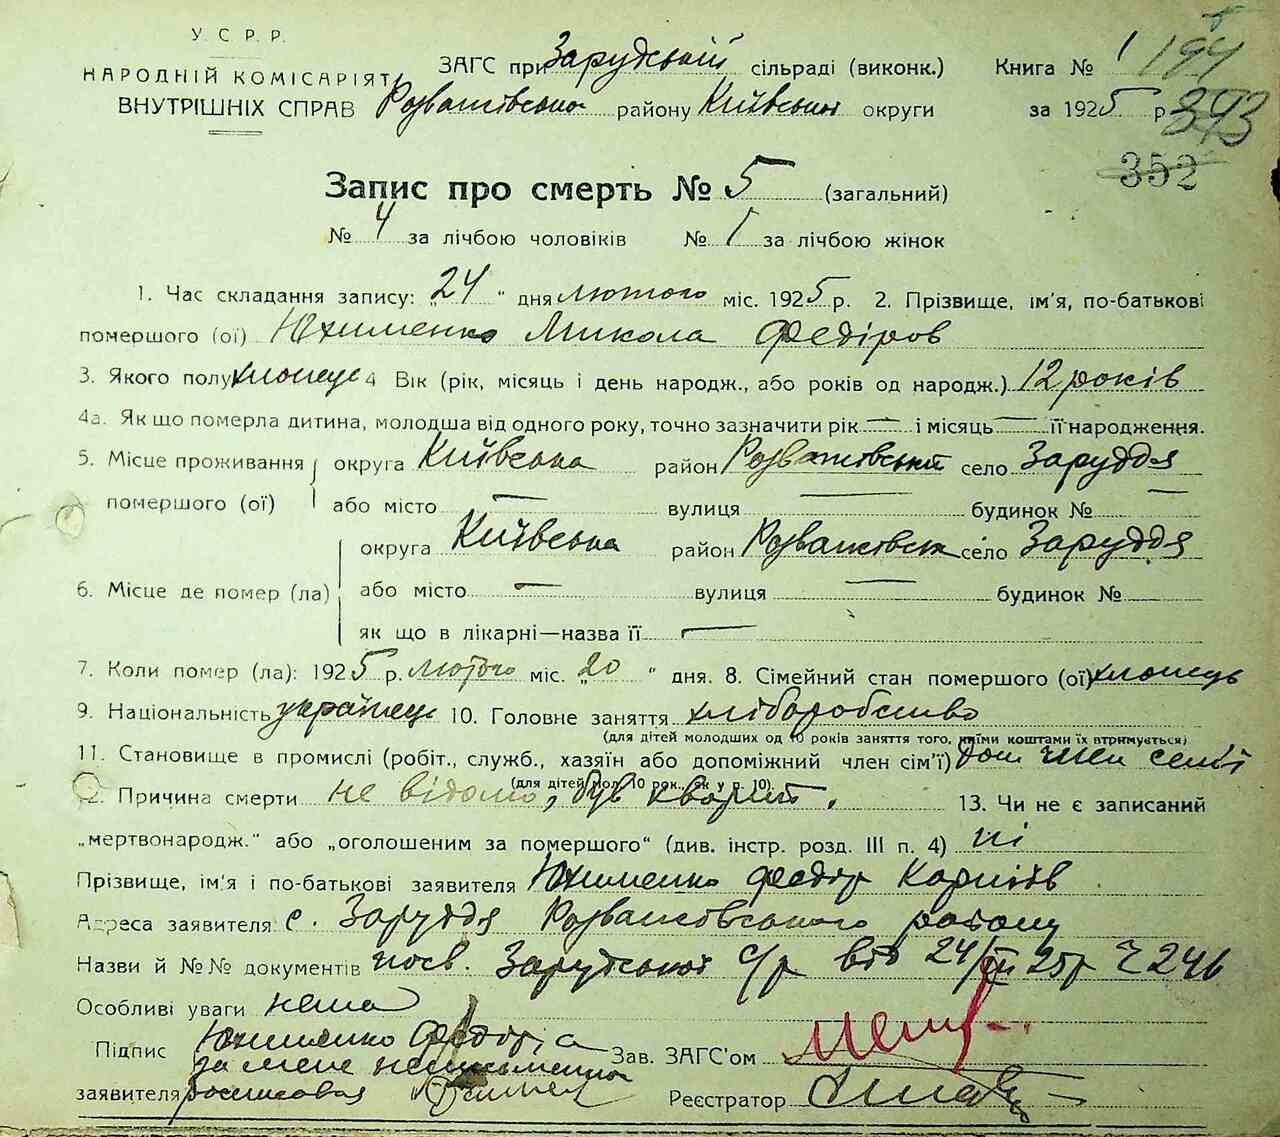 У. С. Р. Р.
НАРОДНІЙ КОМІСАРІЯТ
ВНУТРІШНІХ СПРАВ
ЗАГС при Зарудській сільраді (виконк.)
Розважівського району Київської округи
Книга № 1 194
за 1925 р. 343
352
Запис про смерть № 5 (загальний)
№ 4 за лічбою чоловіків № 1 за лічбою жінок
1. Час складання запису: „24" дня лютого міс. 1925 р. 2. Прізвище, ім'я, по-батькові
помершого (ої) Юхименко Микола Федіров
3. Якого полу хлопець 4 Вік (рік, місяць і день народж., або років од народж.) 12 років
4а. Як що померла дитина, молодша від одного року, точно зазначити рік — і місяць — її народження.
5. Місце проживання округа Київська район Розважівський село Заруддя
помершого (ої) або місто — вулиця — будинок № —
округа Київська район Розважівськ село Заруддя
6. Місце де помер (ла) або місто — вулиця — будинок №
як що в лікарні—назва її —
7. Коли помер (ла): 1925 р. лютого міс. „20" дня. 8. Сімейний стан помершого (ої) хлопець
9. Національність українець 10. Головне заняття хліборобство
(для дітей молодших од 10 років заняття того, чиїми коштами їх втримується)
11. Становище в промислі (робіт., служб., хазяїн або допоміжний член сім'ї) доп член семї
(для дітей мол. 10 рок., як у п. 10).
12. Причина смерти не відомо, був хворий. 13. Чи не є записаний
„мертвонародж." або „оголошеним за помершого" (див. інстр. розд. III п. 4) ні
Прізвище, ім'я і по-батькові заявителя Юхименко Федор
Адреса заявителя: с. Заруддя Розважівського району
Назви й №№ документів посв. Зарудської с/р від 24/II 25р Ч 246
Особливі уваги нема
Підпис Юхименко Федора
за мене неписьменно
заявителя росписовся
Зав. ЗАГС'ом
Реєстратор